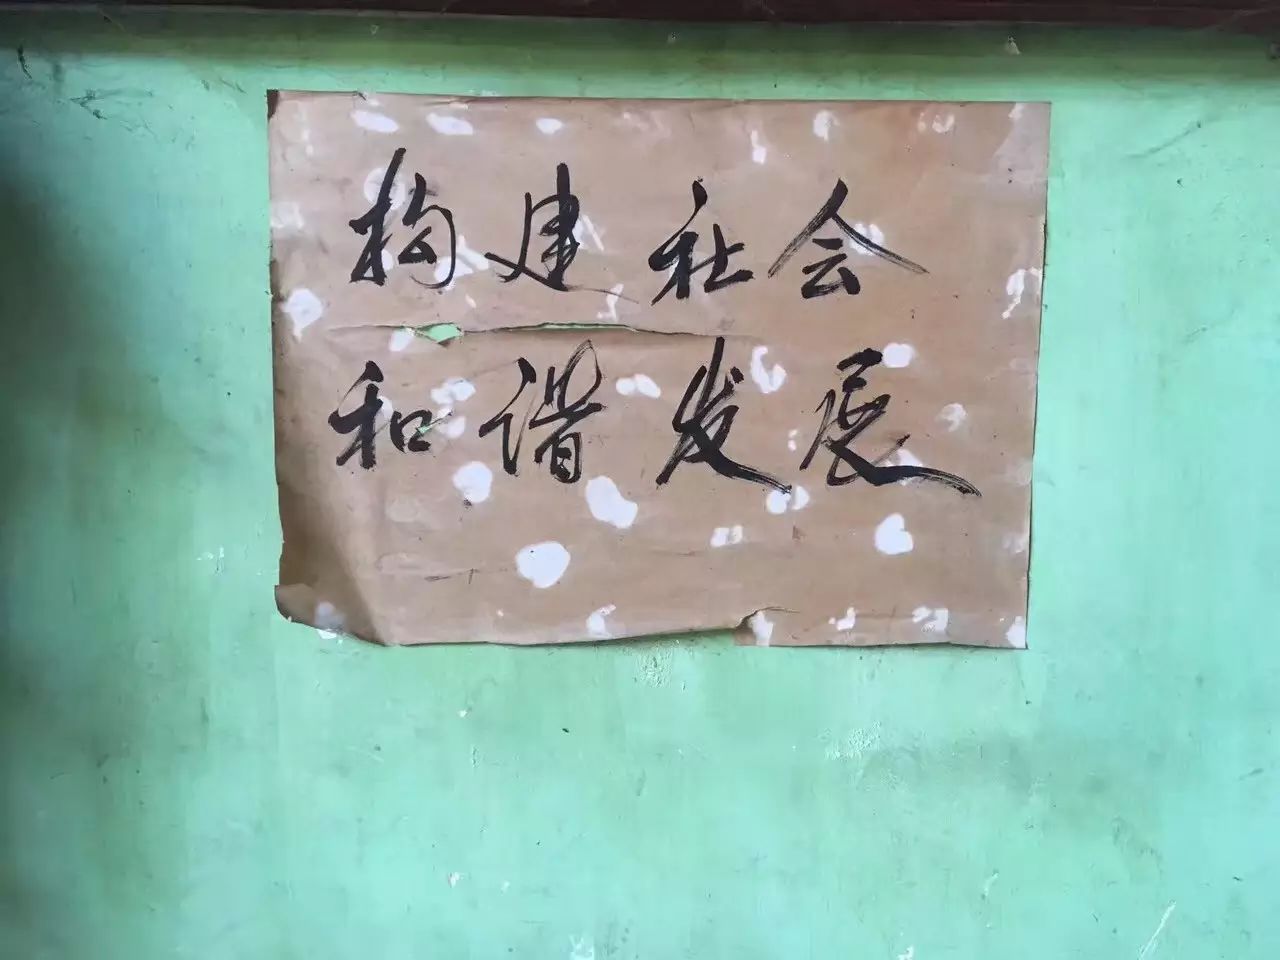 构建社会
和谐发展